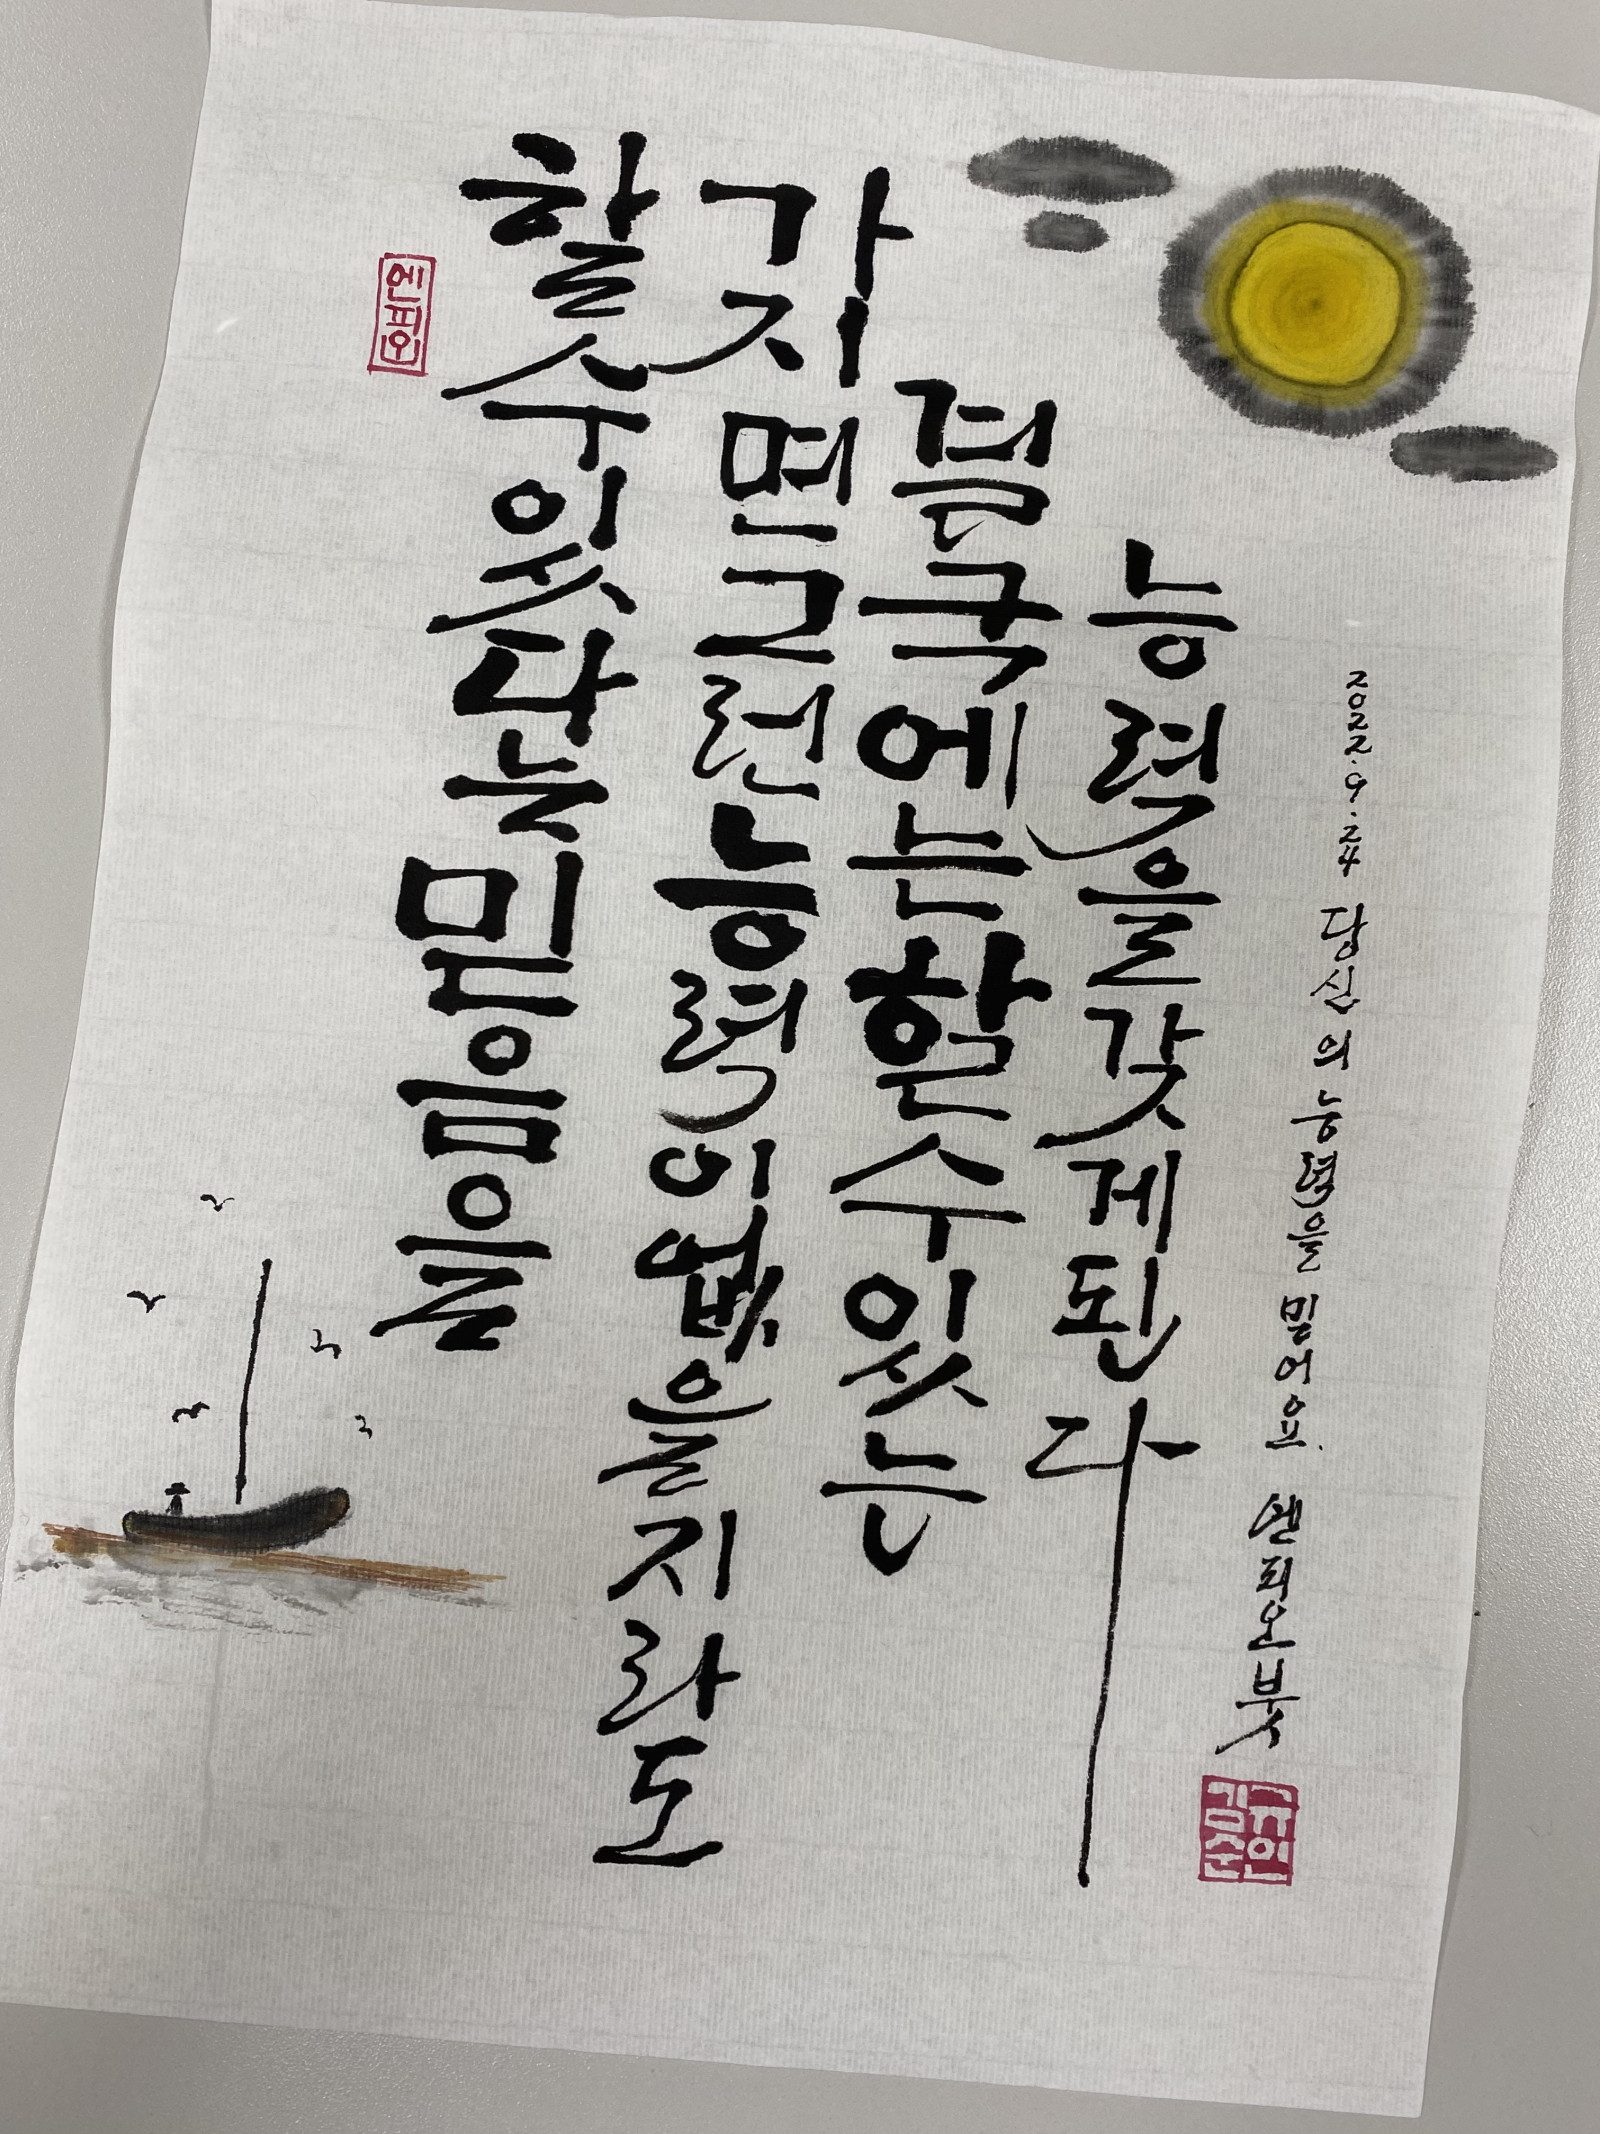 할수있다는믿음을
가지면그런능력이없을지라도
결국에는할수있는
능력을갖게된다
2022.9.24 당신의 능력을 믿어요. 엔피오붓